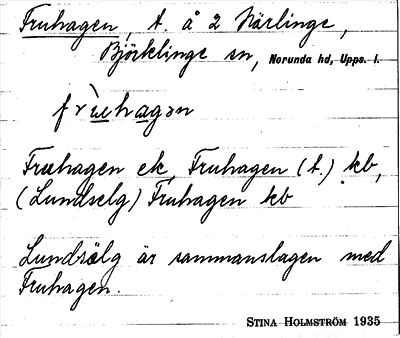 Fruhagen, t. å 2 Närlinge,
Björklinge sn, Norunda hd, Upps. l.
frùehagən
Fruehagen ek, Fruhagen (t.) kb,
(Lundselg) Fruhagen kb
Lundsälg är sammanslagen med
Fruhagen.
STINA HOLMSTRÖM 1935